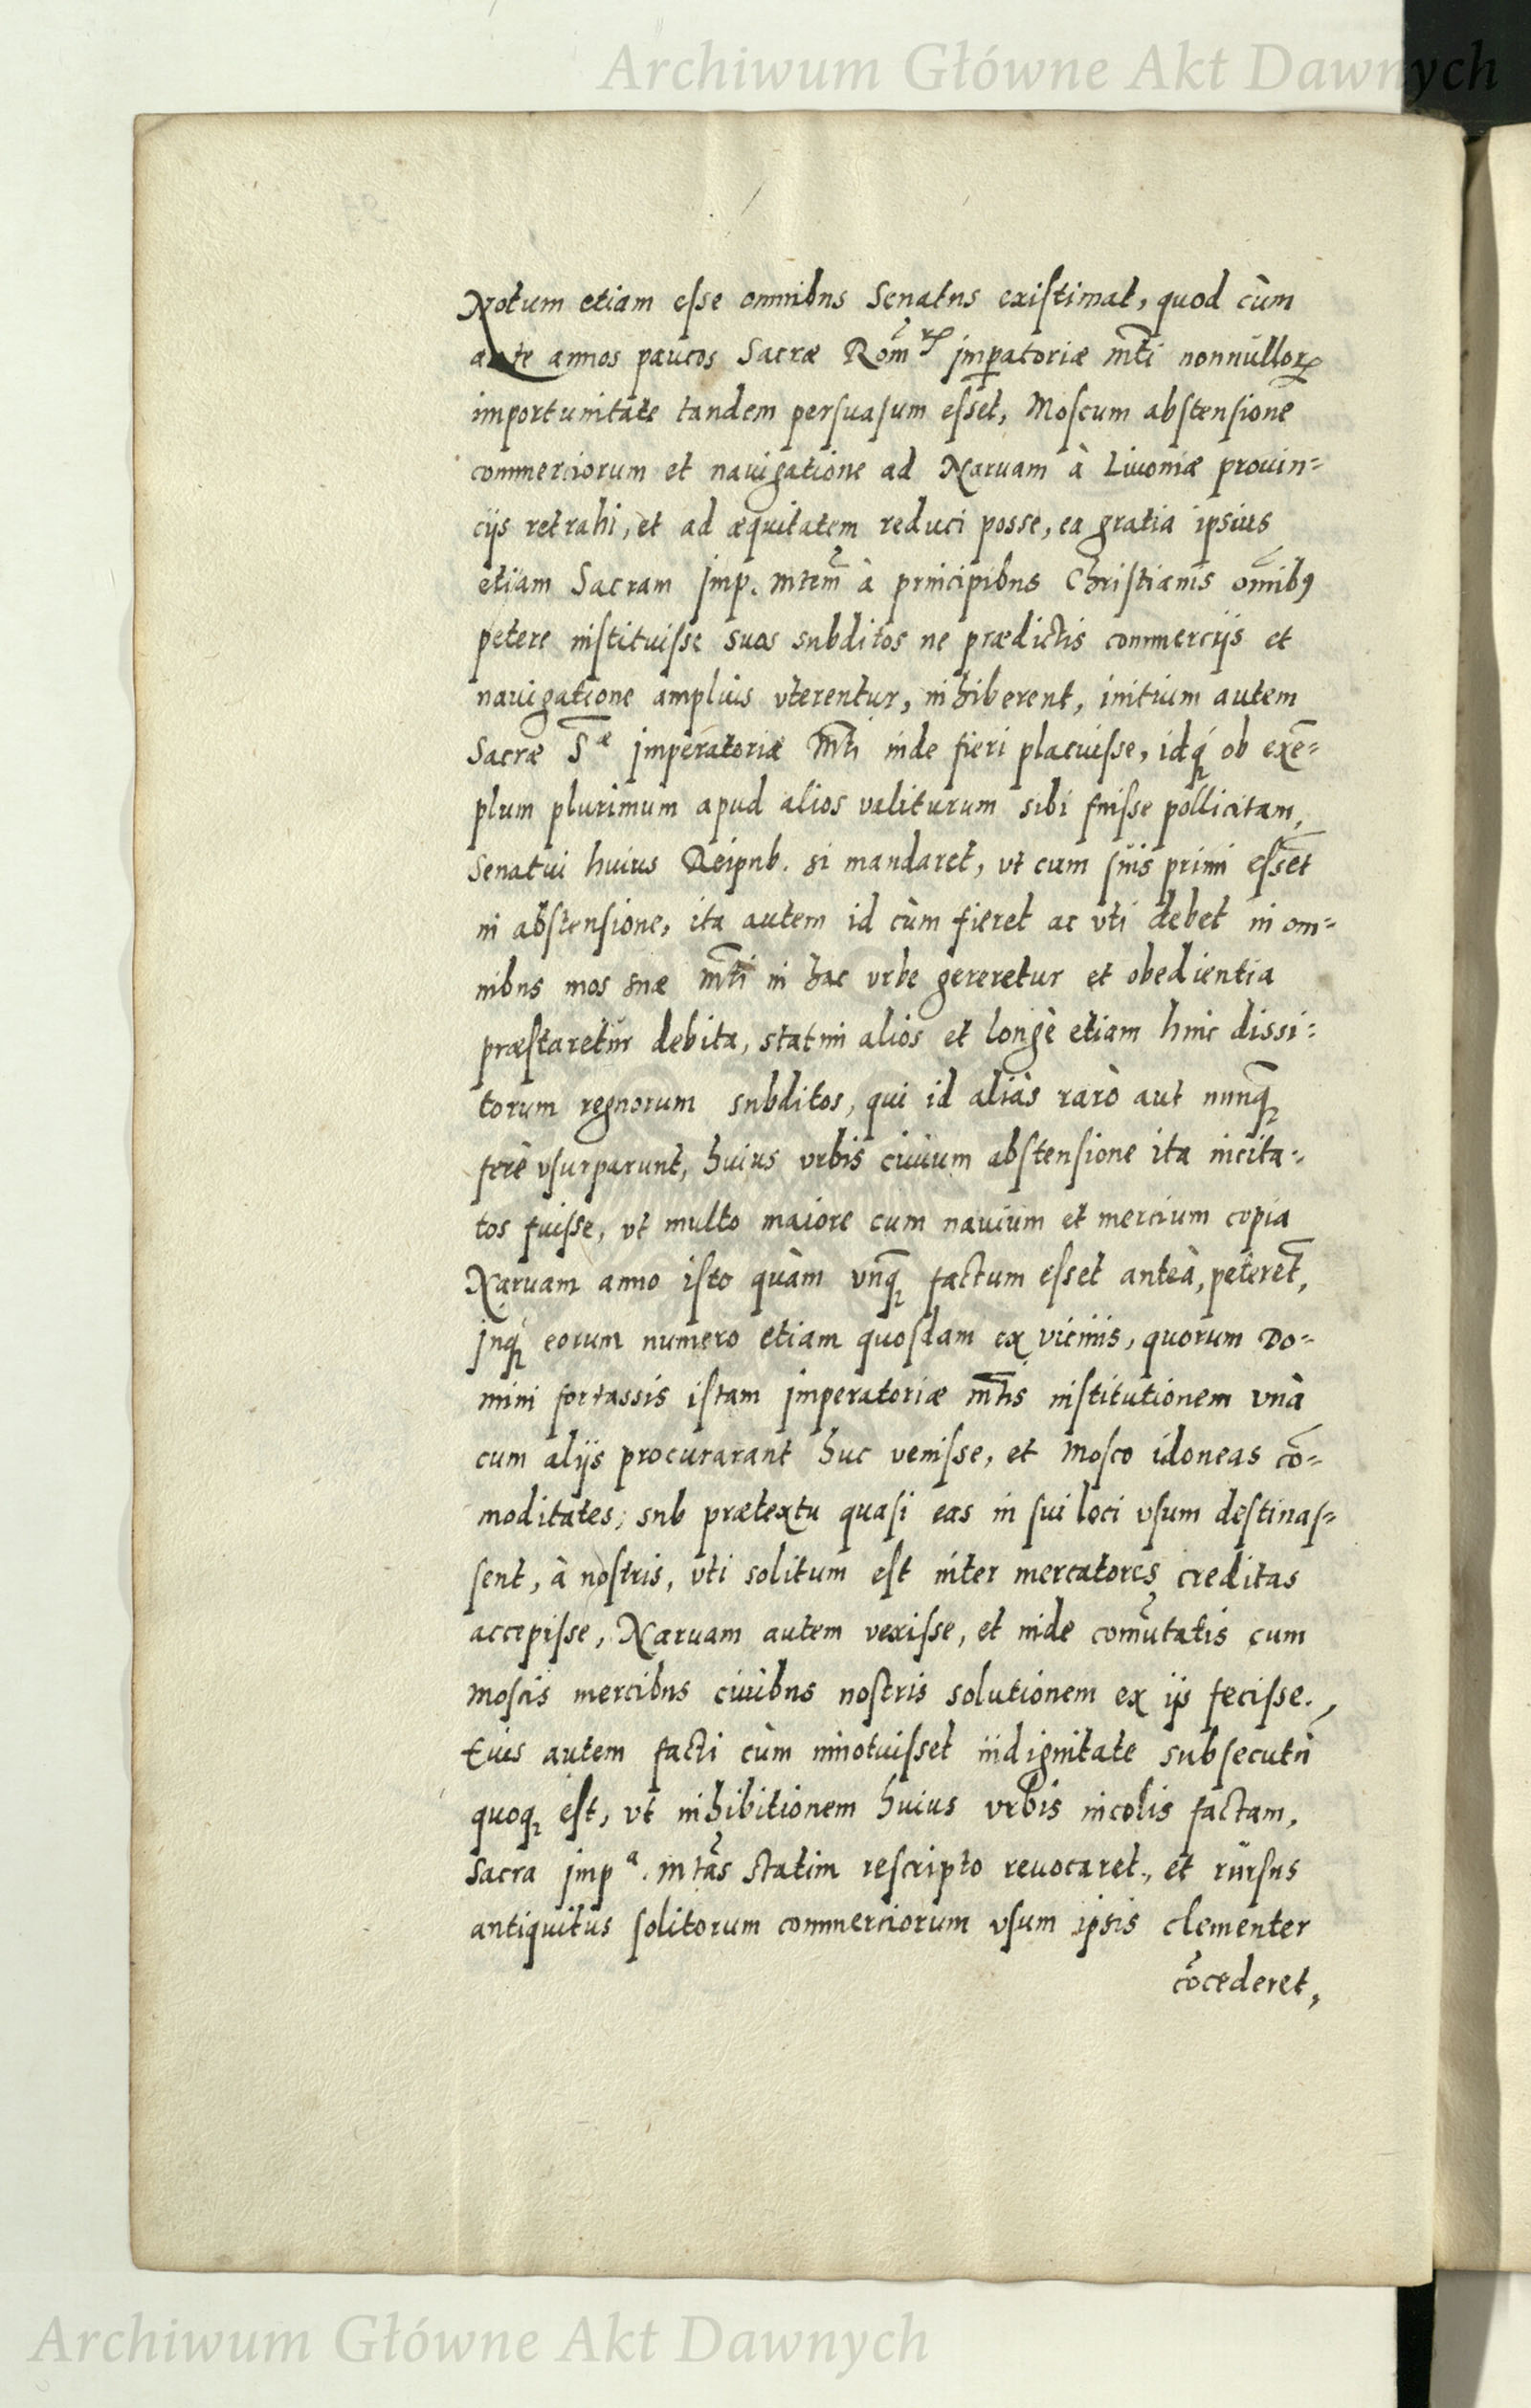 Archiwum Główne Akt Dawnych
Notum etiam esse omnibus Senatus existimat, quod cùm
ante annos paucos Sacræ Rom̃ jmꝑatoriæ Mt̃i nonnulloꝝ
importunitate tandem persuasum esset, Moscum abstensione
commerciorum et nauigatione ad Naruam à Liuoniæ prouin=
cijs retrahi, et ad æquitatem reduci posse, ea gratia ipsius
etiam Sacram Jmp. Mtem̃ à principibus Christianis om̃ibꝯ
petere instituisse suos subditos ne prædictis commercijs et
nauigatione amplius vterentur, inhiberent, initium autem
Sacræ S.æ jmperatoriæ Mt̃i inde fieri placuisse, idq́ ob exẽ=
plum plurimum apud alios valiturum sibi fuisse pollicitam,
Senatui huius Reipub. si mandaret, vt cum suis primi esset̃
in abstensione, ita autem id cùm fieret ac vti debet in om=
nibus mos suæ Mt̃i in hac vrbe gereretur et obedientia
præstaretur debita, statim alios et longè etiam hinc dissi=
torum regnorum subditos, qui id aliàs rarò aut nunq̃
ferè vsurparunt, huius vrbis ciuium abstensione ita incita=
tos fuisse, vt multo maiore cum nauium et mercium copia
Naruam anno isto quàm vnq̃ factum esset anteà, peteret̃,
jnq́ eorum numero etiam quosdam ex vicinis, quorum Do=
mini fortassis istam jmperatoriæ Mt̃is institutionem vnà
cum alijs procurarant huc venisse, et Mosco idoneas cõ=
moditates, sub prætextu quasi eas in sui loci vsum destinas=
sent, à nostris, vti solitum est inter mercatores creditas
accepisse, Naruam autem vexisse, et inde com̃utatis cum
Moscis mercibus ciuibus nostris solutionem ex ijs fecisse.,
Cuius autem facti cùm innotuisset indignitate subsecutũ
quoq; est, vt inhibitionem huius vrbis incolis factam,
Sacra jmp.a Mtas̃ statim rescripto reuocaret, et rursus
antiquitus solitorum commerciorum vsum ipsis clementer
cõcederet,
Archiwum Główne Akt Dawnych